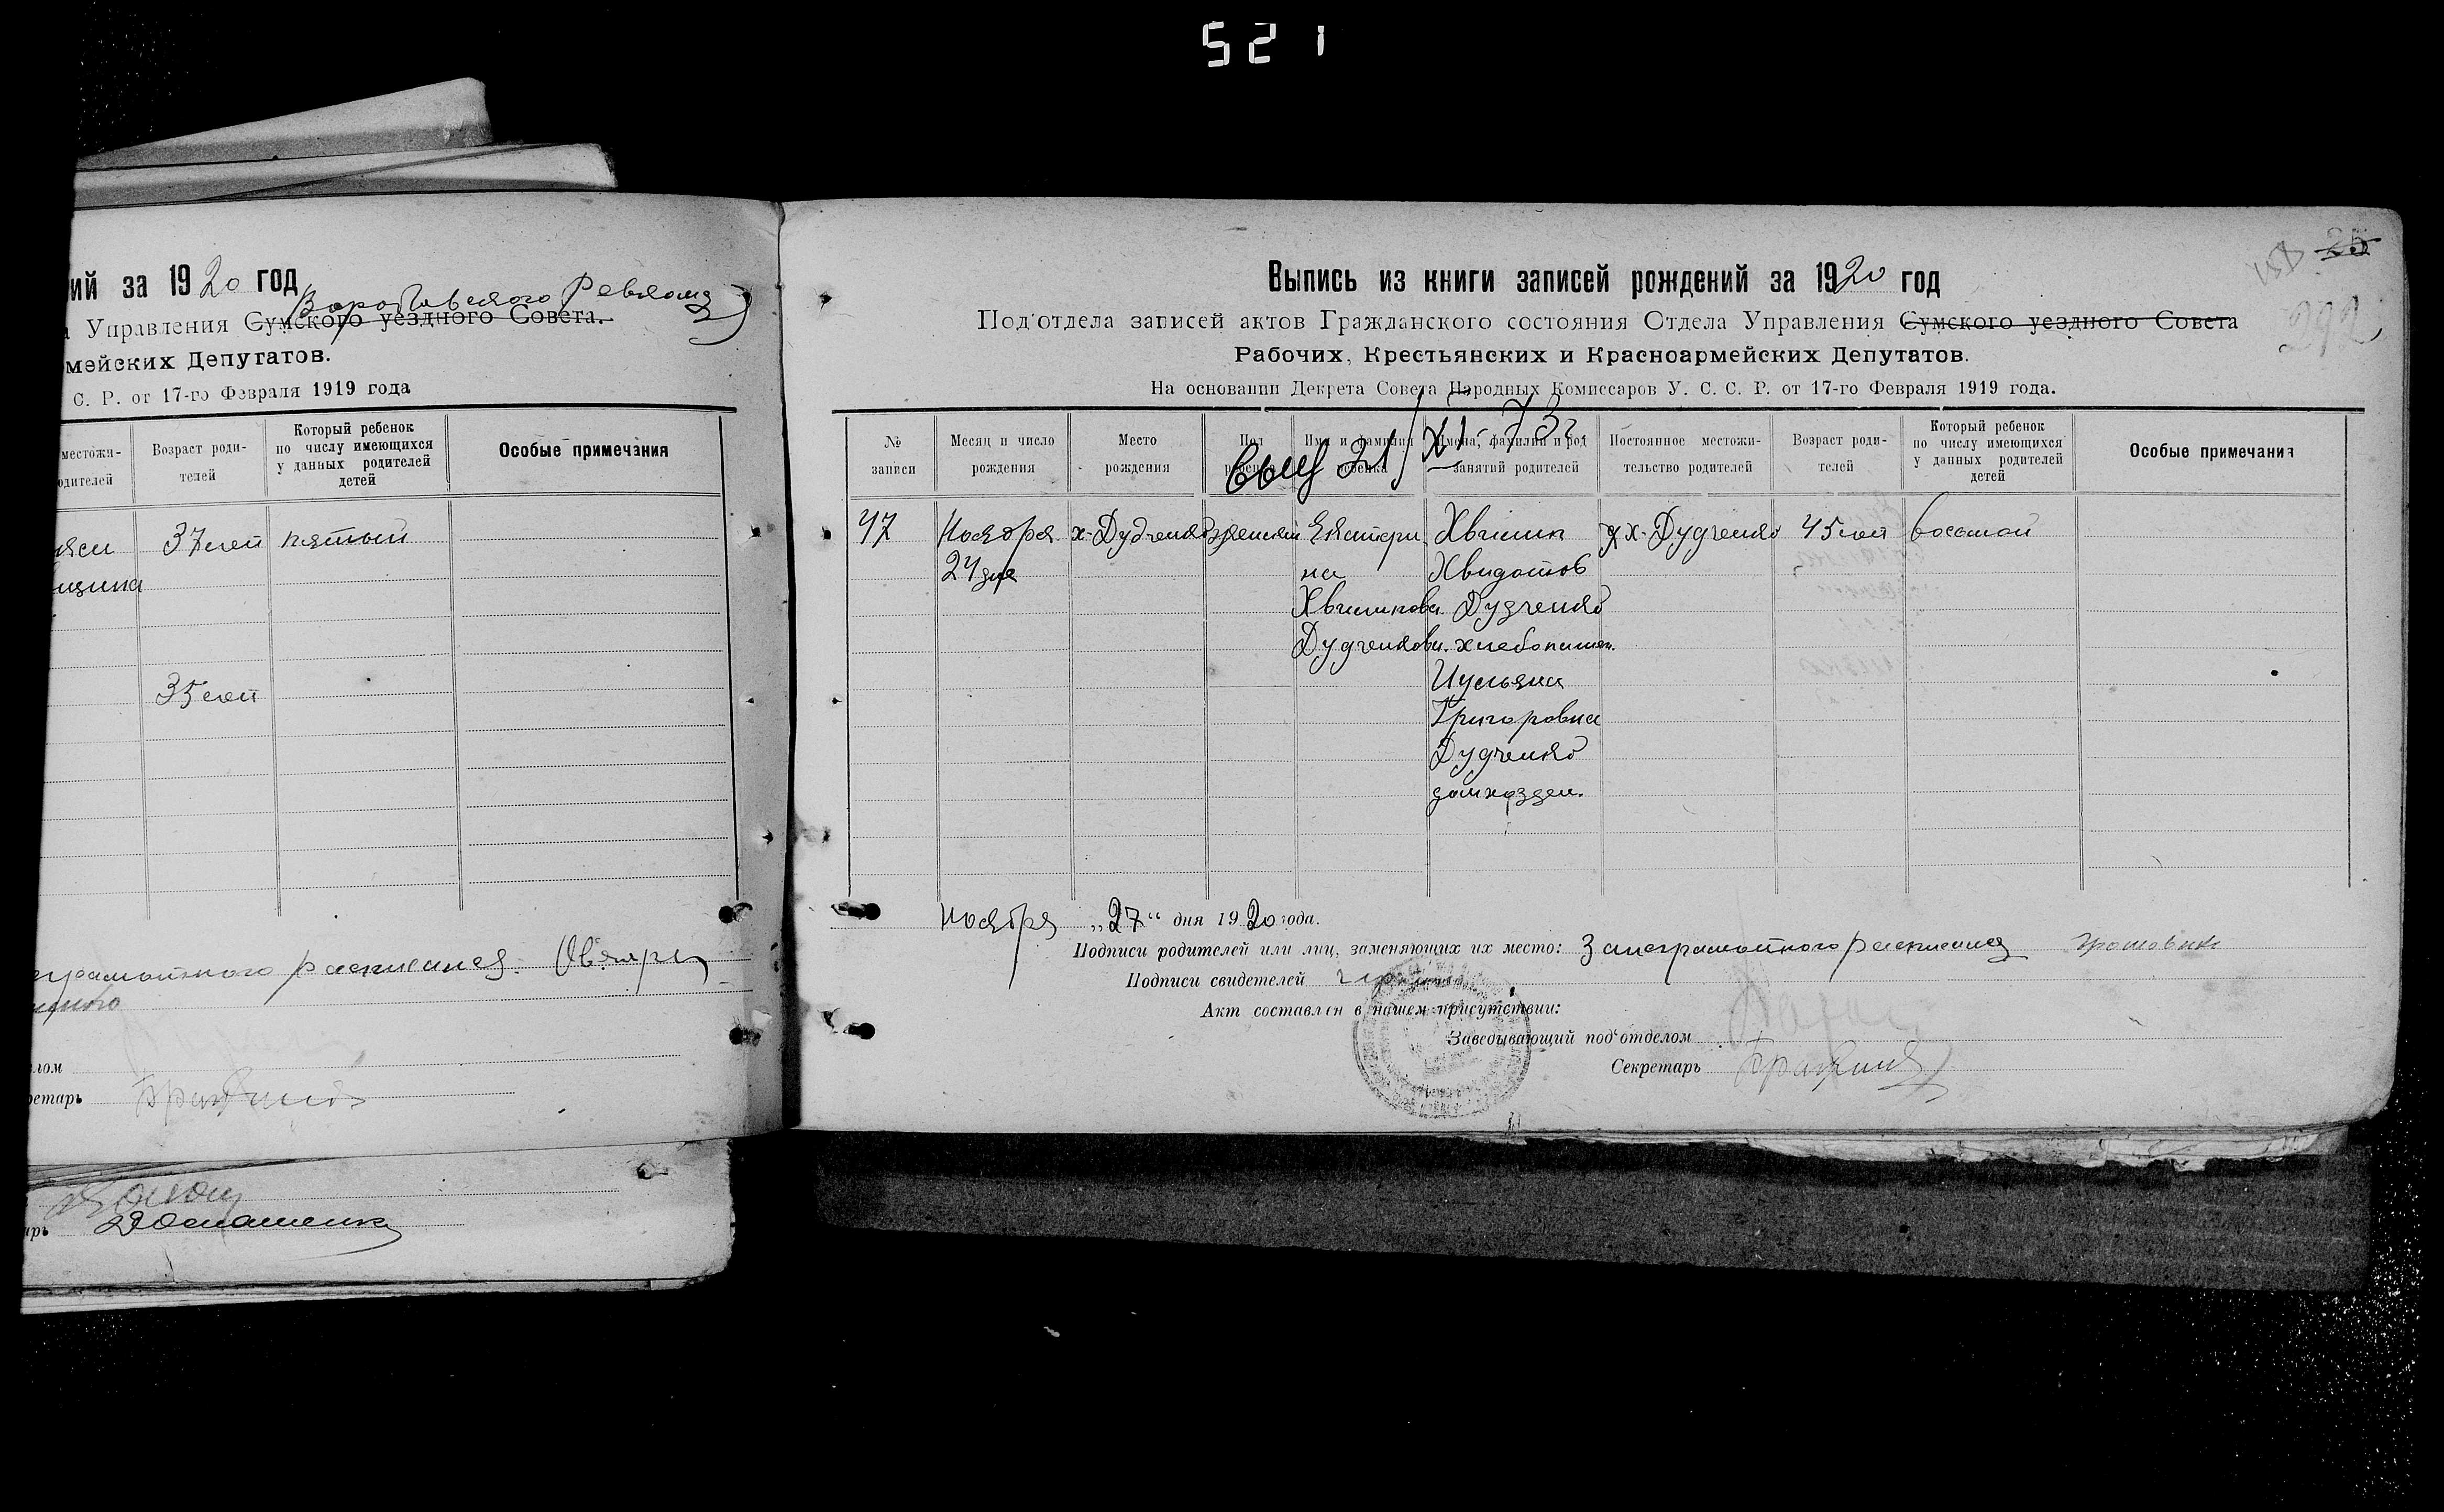 521
ий за 1920 год
Управления Сумского уездного Совета.
мейских Депутатов.
С. Р. от 17-го Февраля 1919 года
местожи-
одителей
Возраст роди-
телей
Который ребенок
по числу имеющихся
у данных родителей
детей
Особые примечания
37 лет пятый
35 лет
расписался
етарь
арь
25
292
Выпись из книги записей рождений за 1920 год
Под'отдела записей актов Гражданского состояния Отдела Управления Сумского уездного Совета
Рабочих, Крестьянских и Красноармейских Депутатов.
На основании Декрета Совета Народных Комиссаров У. С. С. Р. от 17-го Февраля 1919 года.
№
записи
Месяц и число
рождения
Место
рождения
Пол
ребенка
Имя и фамилия
ребенка
Имена, фамилии и род
занятий родителей
Постоянное местожи-
тельство родителей
Возраст роди-
телей
Который ребенок
по числу имеющихся
у данных родителей
детей
Особые примечания
47 Ноября х. Дудченко женский Екатери Х. Дудченко 45 лет восьмой
24 дня на
Дудченко
Дудченкова хлебопашец.
Иульяна
Григоровна
Дудченко
Ноября „27“ дня 1920 года.
Подписи родителей или лиц, заменяющих их место: За неграмотного расписался
Подписи свидетелей
Акт составлен в нашем присутствии:
Заведывающий под'отделом
Секретарь